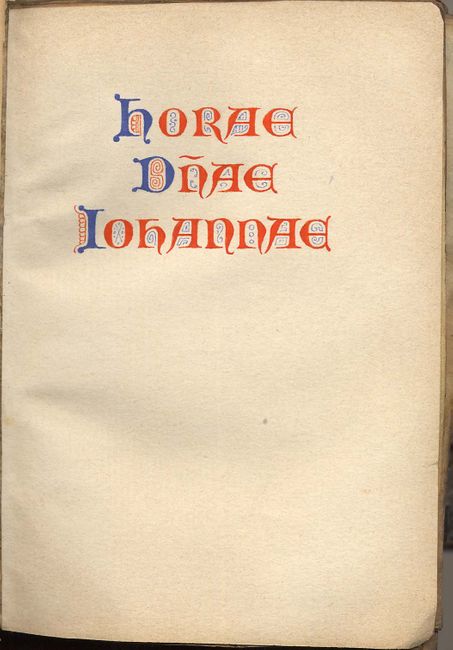 Horae
Dñae
Iohannae